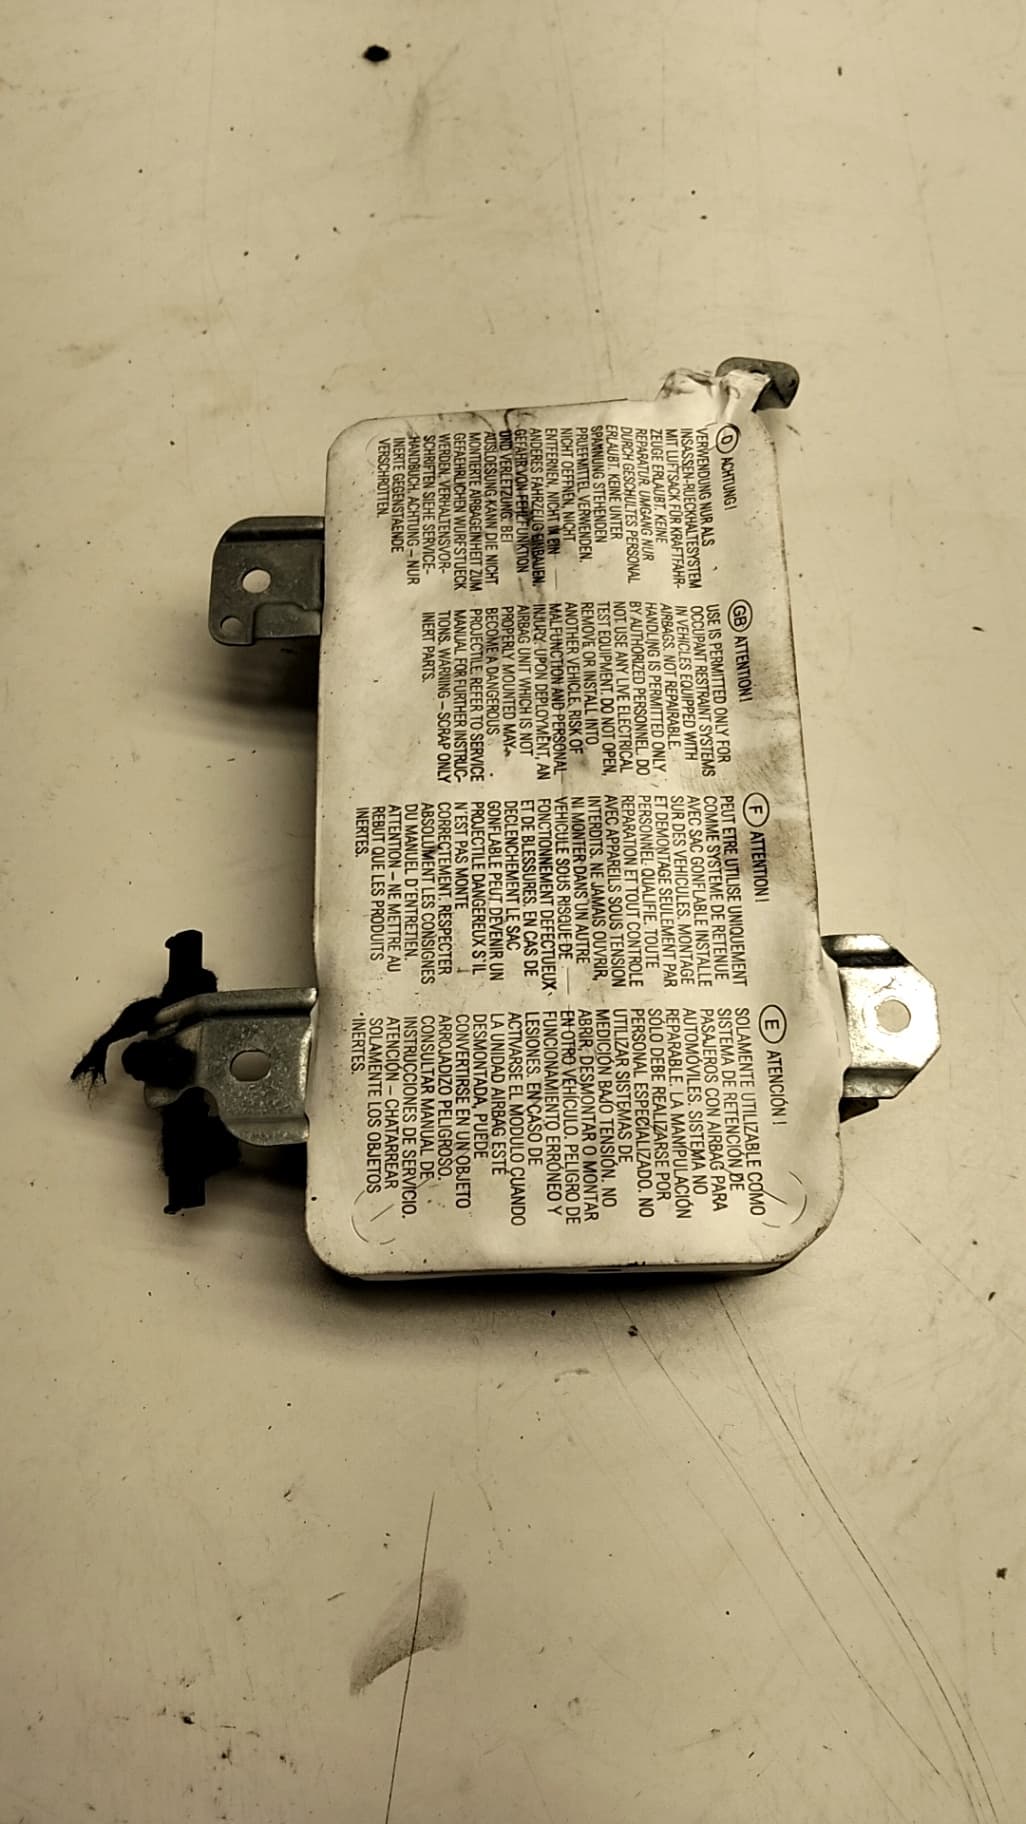 D ACHTUNG!
VERWENDUNG NUR ALS
INSASSEN-RUECKHALTESYSTEM
MIT LUFTSACK FÜR KRAFTFAHR-
ZEUGE ERLAUBT. KEINE
REPARATUR. UMGANG NUR
DURCH GESCHULTES PERSONAL
ERLAUBT. KEINE UNTER
SPANNUNG STEHENDEN
PRUEFMITTEL VERWENDEN.
NICHT OEFFNEN, NICHT
ENTFERNEN, NICHT IN EIN
ANDERES FAHRZEUG EINBAUEN.
GEFAHR VON FEHLFUNKTION
UND VERLETZUNG. BEI
AUSLOESUNG KANN DIE NICHT
MONTIERTE AIRBAGEINHEIT ZUM
GEFAEHRLICHEN WURFSTUECK
WERDEN. VERHALTENSVOR-
SCHRIFTEN SIEHE SERVICE-
HANDBUCH. ACHTUNG – NUR
INERTE GEGENSTAENDE
VERSCHROTTEN.
GB ATTENTION!
USE IS PERMITTED ONLY FOR
OCCUPANT RESTRAINT SYSTEMS
IN VEHICLES EQUIPPED WITH
AIRBAGS. NOT REPAIRABLE.
HANDLING IS PERMITTED ONLY
BY AUTHORIZED PERSONNEL. DO
NOT USE ANY LIVE ELECTRICAL
TEST EQUIPMENT. DO NOT OPEN,
REMOVE OR INSTALL INTO
ANOTHER VEHICLE. RISK OF
MALFUNCTION AND PERSONAL
INJURY. UPON DEPLOYMENT, AN
AIRBAG UNIT WHICH IS NOT
PROPERLY MOUNTED MAY
BECOME A DANGEROUS
PROJECTILE. REFER TO SERVICE
MANUAL FOR FURTHER INSTRUC-
TIONS. WARNING – SCRAP ONLY
INERT PARTS.
F ATTENTION!
PEUT ETRE UTILISE UNIQUEMENT
COMME SYSTEME DE RETENUE
AVEC SAC GONFLABLE INSTALLE
SUR DES VEHICULES. MONTAGE
ET DEMONTAGE SEULEMENT PAR
PERSONNEL QUALIFIE. TOUTE
REPARATION ET TOUT CONTROLE
AVEC APPAREILS SOUS TENSION
INTERDITS. NE JAMAIS OUVRIR,
NI MONTER DANS UN AUTRE
VEHICULE SOUS RISQUE DE
FONCTIONNEMENT DEFECTUEUX
ET DE BLESSURES. EN CAS DE
DECLENCHEMENT LE SAC
GONFLABLE PEUT DEVENIR UN
PROJECTILE DANGEREUX S'IL
N'EST PAS MONTE
CORRECTEMENT. RESPECTER
ABSOLUMENT LES CONSIGNES
DU MANUEL D'ENTRETIEN.
ATTENTION – NE METTRE AU
REBUT QUE LES PRODUITS
INERTES.
E ATENCIÓN!
SOLAMENTE UTILIZABLE COMO
SISTEMA DE RETENCIÓN DE
PASAJEROS CON AIRBAG PARA
AUTOMÓVILES. SISTEMA NO
REPARABLE. LA MANIPULACIÓN
SOLO DEBE REALIZARSE POR
PERSONAL ESPECIALIZADO. NO
UTILIZAR SISTEMAS DE
MEDICIÓN BAJO TENSIÓN. NO
ABRIR, DESMONTAR O MONTAR
EN OTRO VEHÍCULO. PELIGRO DE
FUNCIONAMIENTO ERRÓNEO Y
LESIONES. EN CASO DE
ACTIVARSE EL MODULO CUANDO
LA UNIDAD AIRBAG ESTÉ
DESMONTADA, PUEDE
CONVERTIRSE EN UN OBJETO
ARROJADIZO PELIGROSO.
CONSULTAR MANUAL DE
INSTRUCCIONES DE SERVICIO.
ATENCIÓN – CHATARREAR
SOLAMENTE LOS OBJETOS
INERTES.